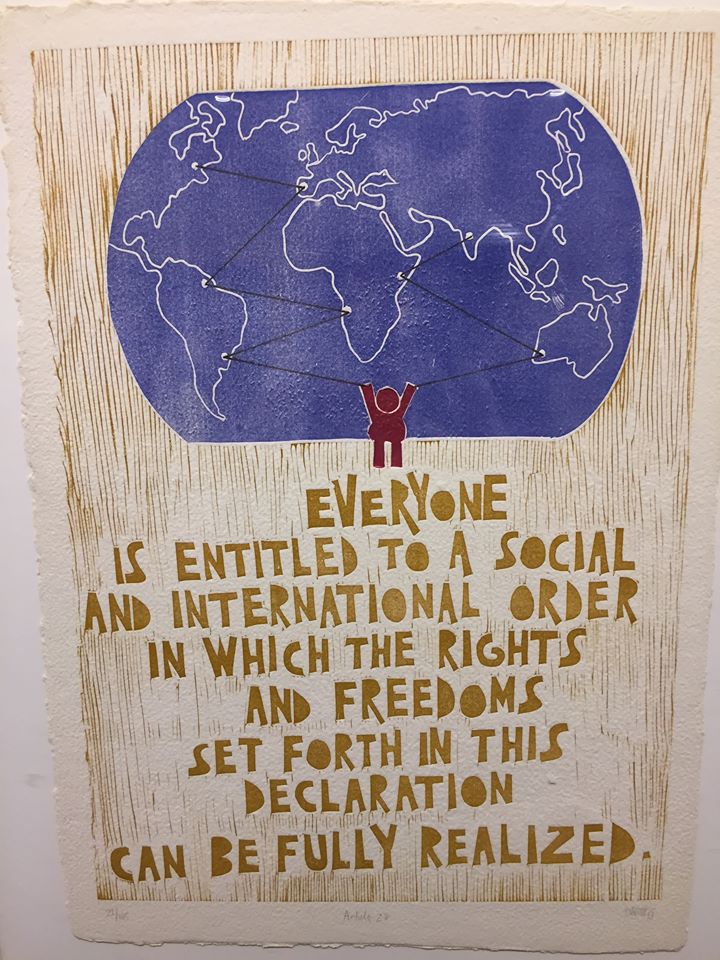 EVERYONE
IS ENTITLED TO A SOCIAL
AND INTERNATIONAL ORDER
IN WHICH THE RIGHTS
AND FREEDOMS
SET FORTH IN THIS
DECLARATION
CAN BE FULLY REALIZED.
Article 28